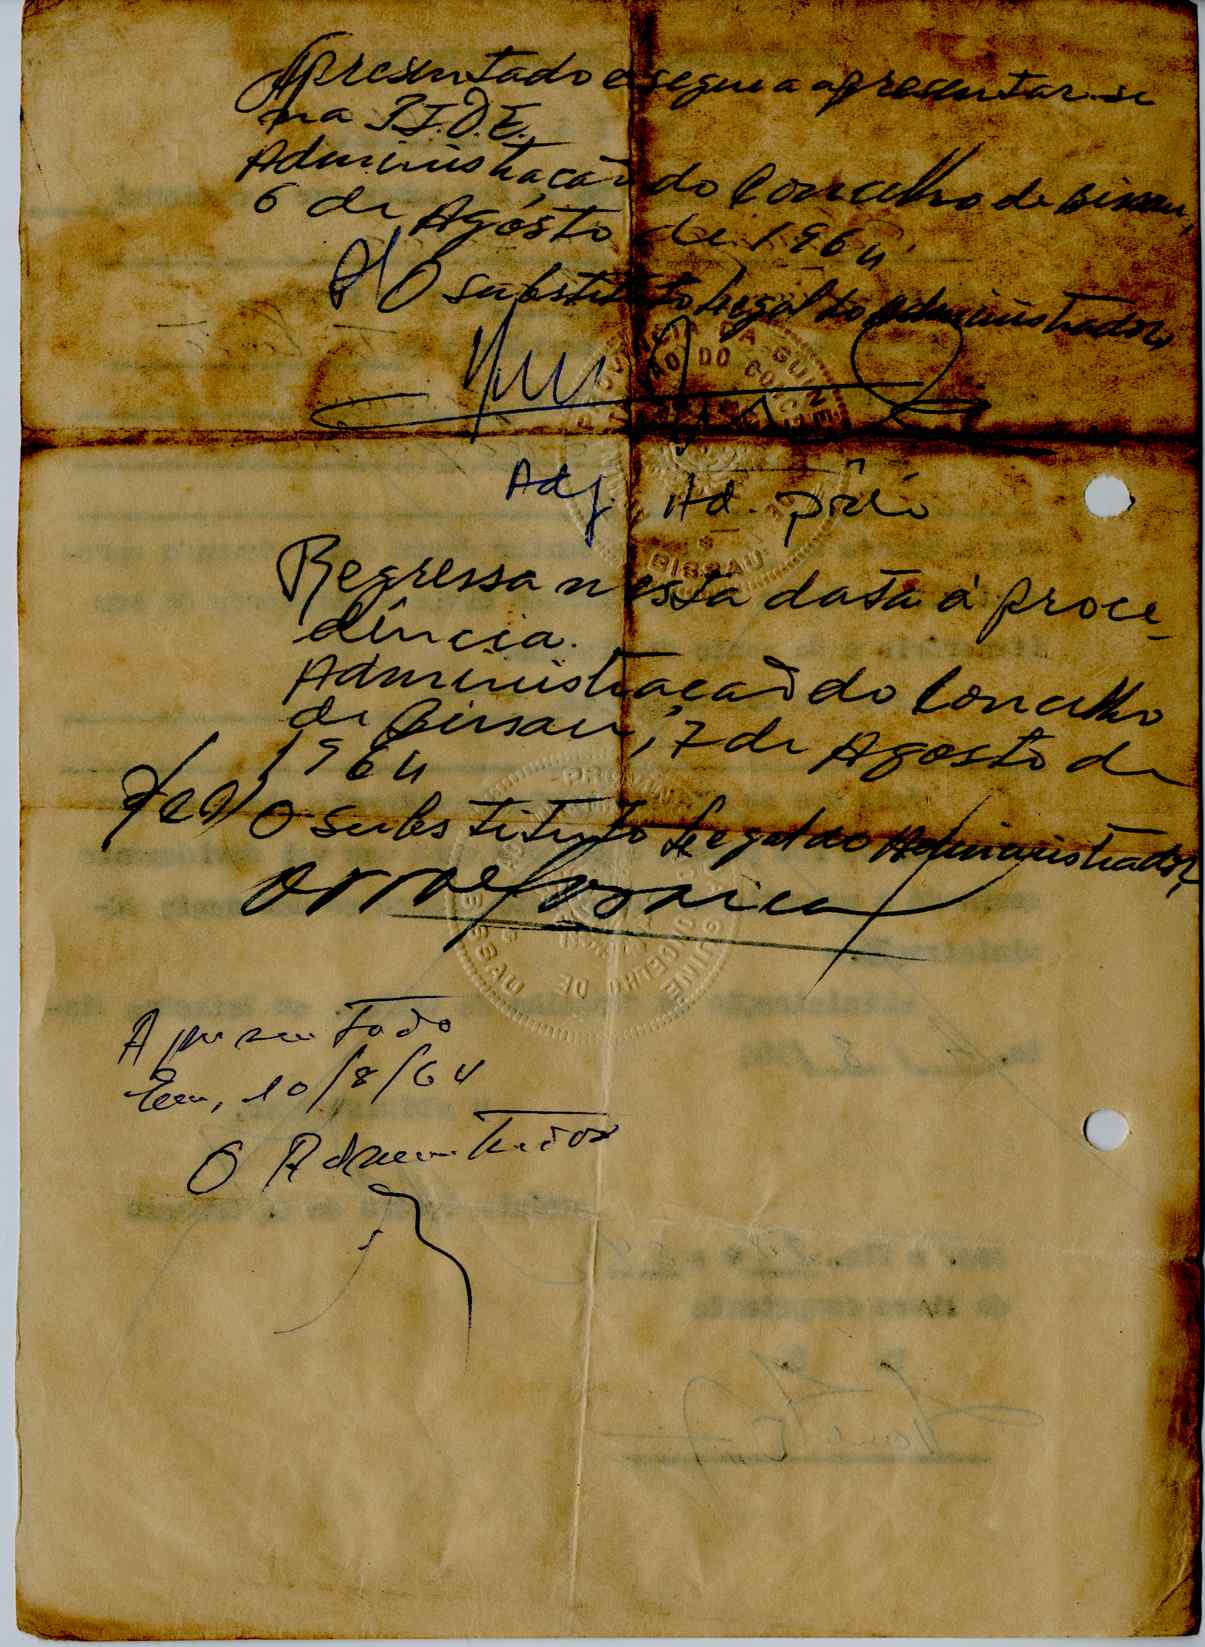 Apresentado e segue a apresentar-se
na P.I.D.E.
Administração do Concelho de Bissau,
6 de Agôsto de 1964
P/ O substituto legal do Administrador,
Adj. Ad. pôsto
Regressa nesta data à proce-
dência.
Administração do Concelho
de Bissau, 7 de Agôsto de
1964
O substituto legal do Administrador,
Apresentado
Em, 10/8/64
O Administrador
PROVINCIA DA GUINÉ
DO CONCELHO
BISSAU
PROVINCIA
GUINÉ
CONCELHO DE
BISSAU